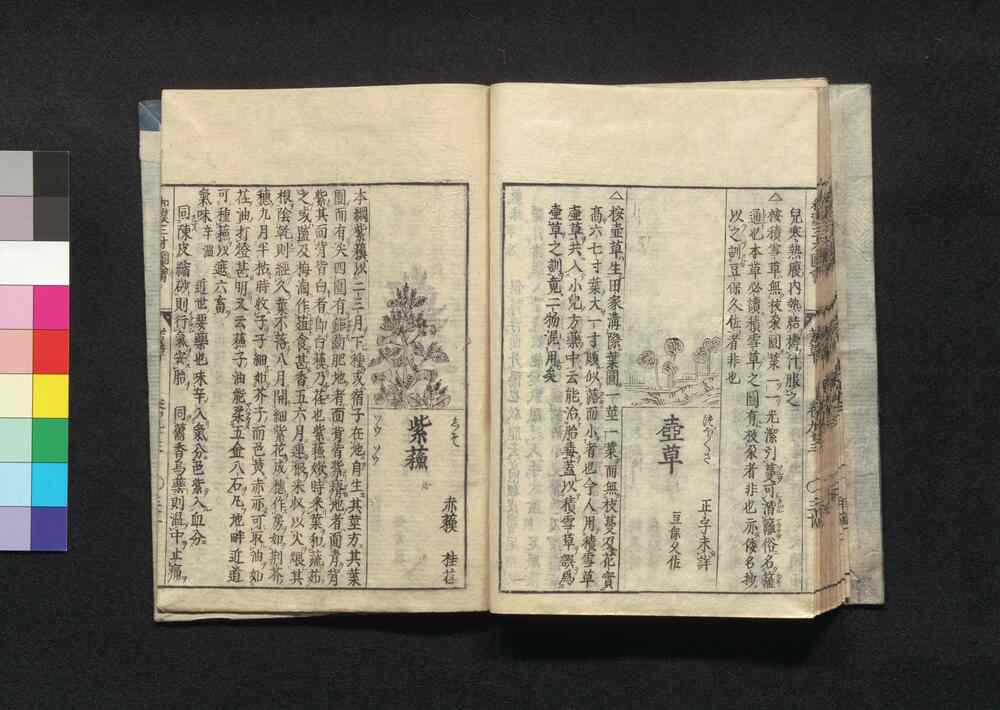 兒寒熱腹内熱結擣汁服之
△按積雪草無枝衆圓葉一一尤潔引蔓可潜籬俗名籬
通也本草必讀積雪草之圖有枝衆者非也亦倭名抄
以之訓豆保久佐者非也
つぼくさ
壺草
正字未詳
豆保久佐
△按壺草生田家溝際葉圓一莖一葉而無枝蔓及花實
高六七寸葉大一寸頗似蕗而小者也今人用積雪草
壺草共入小兒方藥中云能治胎毒蓋以積雪草誤爲
壺草之訓竟二物混用矣
しそ
紫蘓
赤蘓
桂荏
本綱紫蘓以二三月下種或宿子在地自生其莖方其葉
圓而有尖四圍有鋸齒肥地者面背皆紫瘠地者面青背
紫其面背皆白者即白蘓乃荏也紫蘓嫩時采葉和蔬茹
之或鹽及梅滷作葅食甚香五六月連根采收以火煨其
根陰乾則經久葉不落八月開細紫花成穗作房如荊芥
穗九月半枯時收子子細如芥子而色黄赤亦可取油如
荏油打燈甚明又云蘓子油能柔五金八石凡地畔近道
可種蘓以遮六畜
氣味辛温
近世要藥也味辛入氣分色紫入血分
同陳皮縮砂則行氣安胎
同藿香烏藥則温中止痛